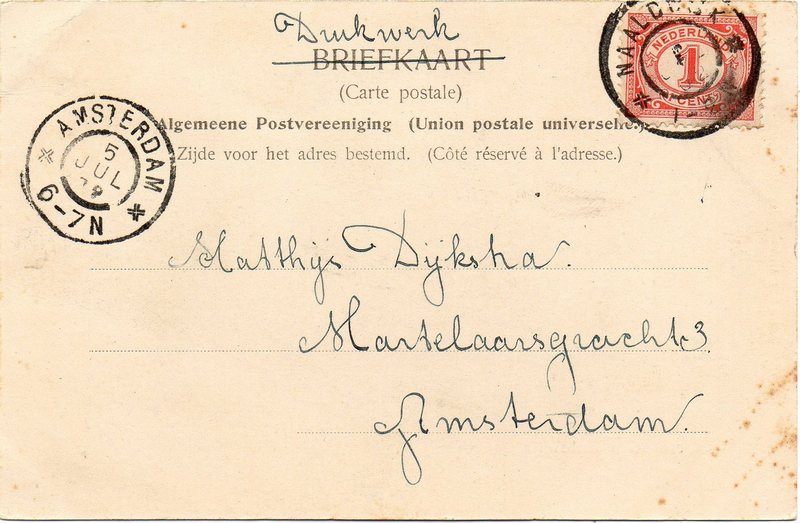 Drukwerk
BRIEFKAART
(Carte postale)
Algemeene Postvereeniging (Union postale universelle.)
Zijde voor het adres bestemd. (Côté réservé à l'adresse.)
NAALDWYK
NEDERLAND
1
CENT
AMSTERDAM
5
JUL
6-7N
Matthijs Dijkstra.
Martelaarsgracht 3
Amsterdam.